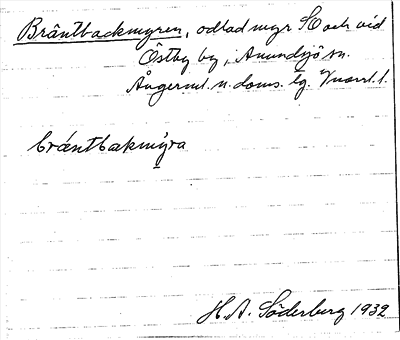 Bräntbackmyren, odlad myr SO och vid
Östby by, Anundsjö sn.
Ångerml. n. doms. tg. Vnorrl. l.
bräntbakmýra
H.A. Söderberg 1932